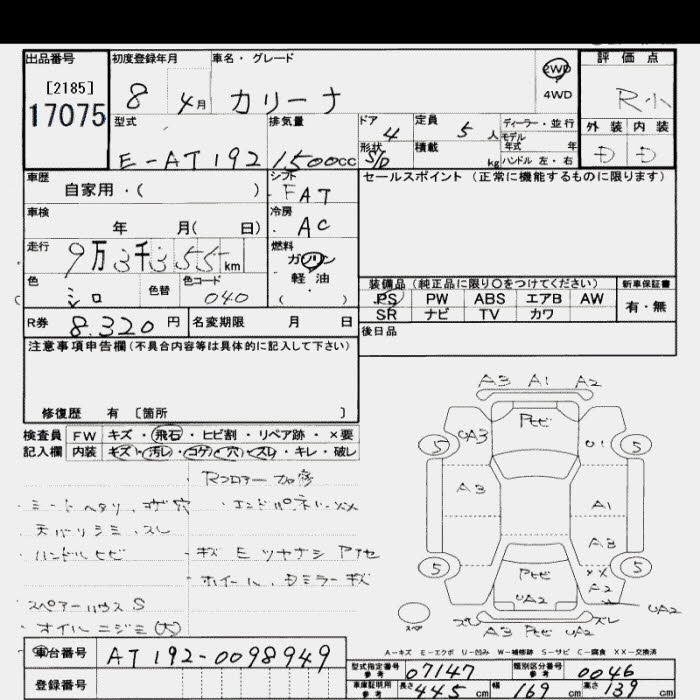 出品番号
[2185]
17075
初度登録年月 車名・グレード
8 4月 カリーナ
2WD
4WD
評価点
R・小
外装 内装
D D
型式 排気量
E-AT192 1500cc
ドア 4 定員 5人
形状 S/D 積載 kg
ディーラー・並行
モデル年式 年
ハンドル 左・右
車歴
自家用・( )
シフト
FAT
車検
年 月( 日)
冷房
AC
走行
9万3千355km
燃料
ガソリン
軽油
( )
色 シロ 色替 色コード 040
( )
R券 8,320円 名変期限 月 日
セールスポイント(正常に機能するものに限ります)
装備品(純正品に限り○をつけてください)
PS PW ABS エアB AW
SR ナビ TV カワ
新車保証書
有・無
後日品
注意事項申告欄(不具合内容等は具体的に記入して下さい)
修復歴 有〔箇所 〕
検査員記入欄
FW キズ・飛石・ヒビ割・リペア跡・×要
内装 キズ・汚レ・コゲ・穴・スレ・キレ・破レ
・Rフロアー 加修
・シートヘタリ、コゲ穴 ・エンドパネルXX
・天バリシミ、スレ
・ハンドルヒビ ・キズ E ツヤナシ Pアセ
・ホイール、ミラーキズ
・スペアーハウスS
・オイルニジミ(大)
A3 A1 A2
Pヒビ
UA3 U1
5 5
A3
A1
A3
5 5
Pヒビ
XX
A2
UA2
UA2
スペア
スレ スレ
A3 Pヒビ UA2
A-キズ E-エクボ U-凹み W-補修跡 S-サビ C-腐食 XX-交換済
車台番号 AT192-0098949
登録番号
型式指定番号 参考 07147 類別区分番号 参考 0046
車庫証明用 参考 長さ 445cm 幅 169cm 高さ 139cm